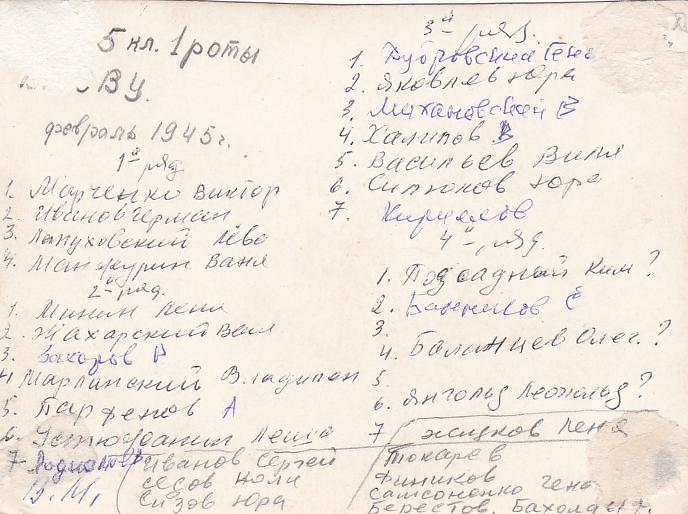 5 кл. 1 роты
ВУ.
февраль 1945 г.
1й ряд
1. Марченко Виктор
2. Иванов Герман
3. Лапуховский Лёва
4. Манжурин Ваня
2й ряд.
1. Минин Леня
2. Жахарский Валя
3. Захаров В
4. Марлинский Владилен
5. Парфенов А
6. Леша
7.
В.М.
Иванов Сергей
Сесов Коля
Сизов Юра
3й ряд.
1. Дубровский Гена
2. Яковлев Юра
3. Михановский В
4. Халипов В
5. Васильев Виля
6. Силюков Юра
7. Кириллов
4й ряд.
1. Подсадный Ким?
2. Банников Е
3.
4. Баланцев Олег.?
5.
6. Янгольд Леопольд?
7 Жидков Леня
Токарев
Фиников
Самсоненко Гена
Берестов.